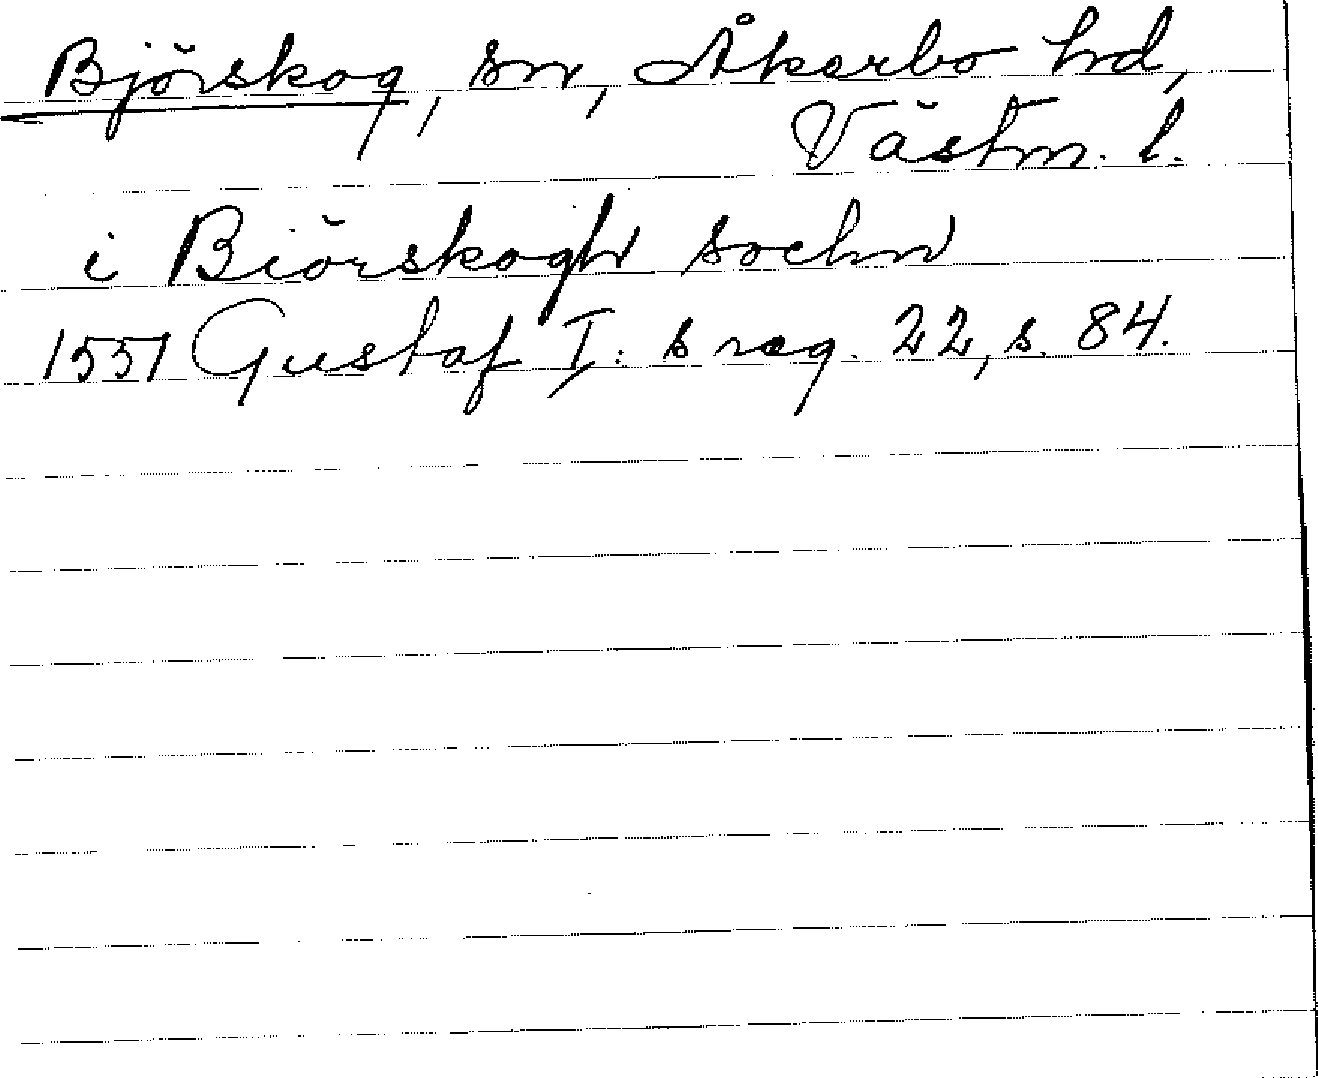 Björskog, sn, Åkerbo hd,
Västm. l.
i Biörskogh sochn
1551 Gustaf I: s reg. 22, s. 84.